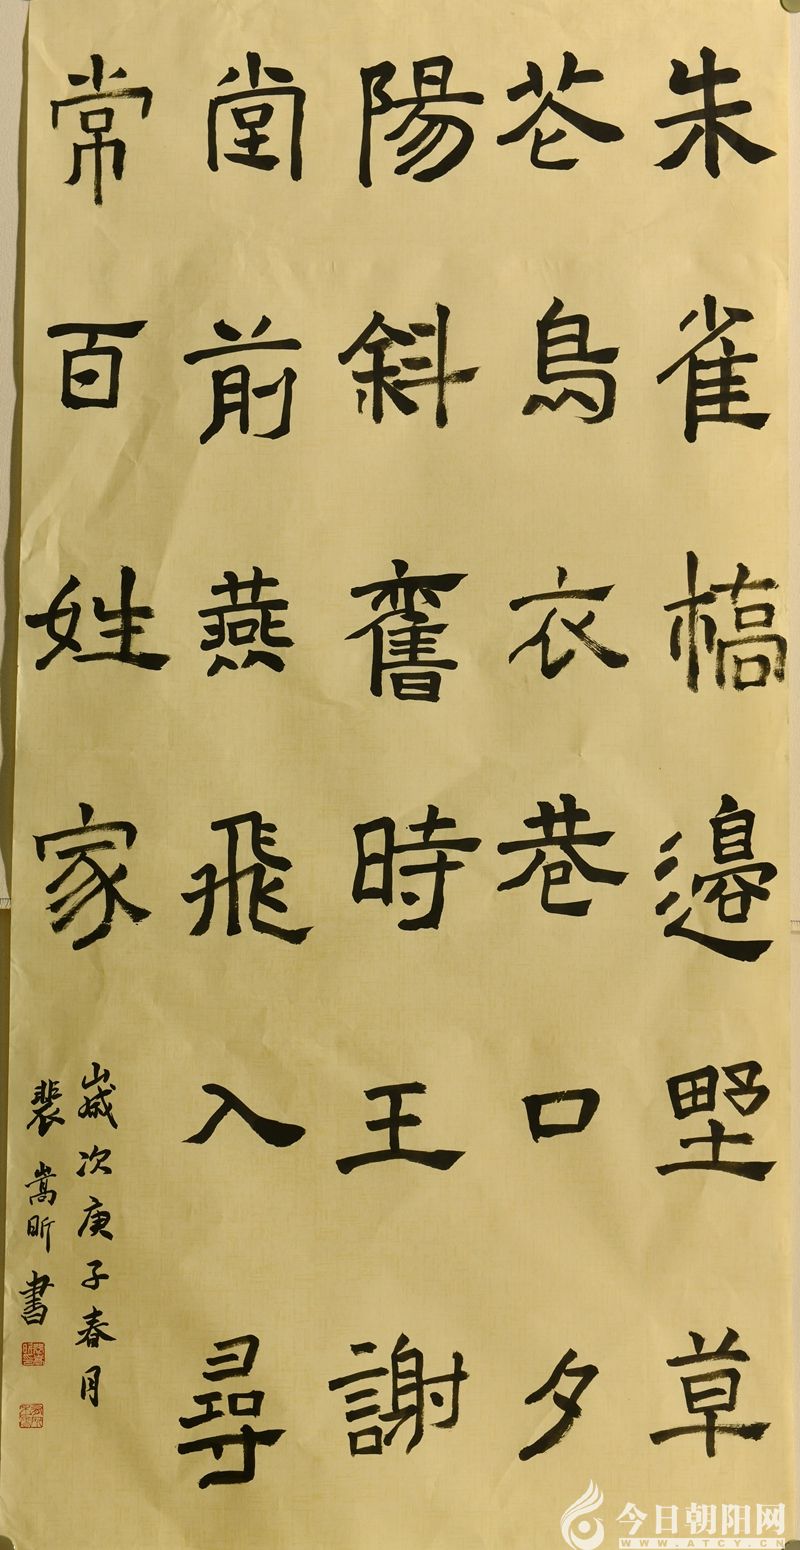 朱雀槗邊野草
花鳥衣巷口夕
陽斜舊時王謝
堂前燕飛入尋
常百姓家
歲次庚子春月
裴嵩昕書
今日朝阳网
WWW.ATCY.CN